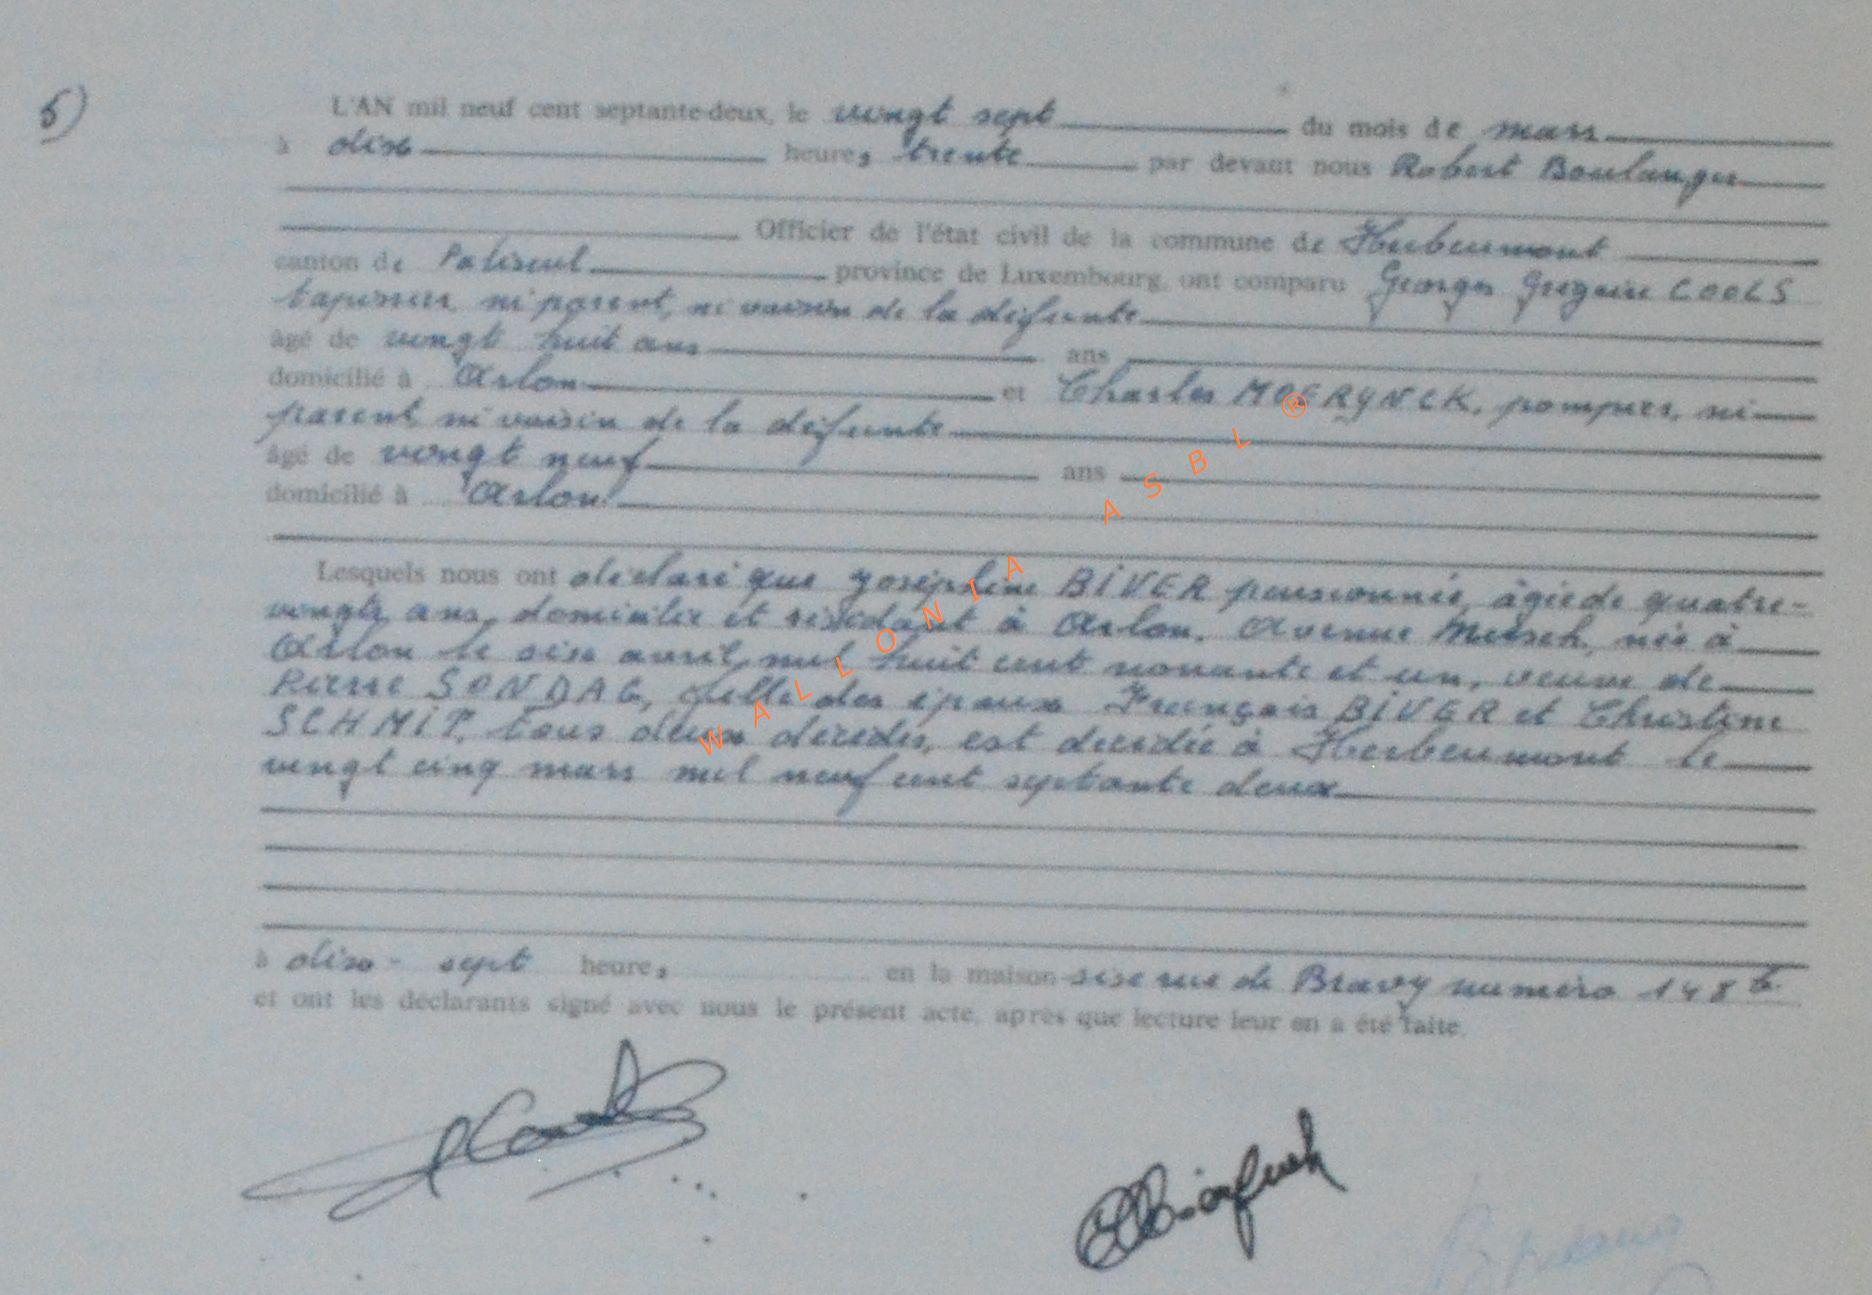 5)
L'AN mil neuf cent septante-deux, le vingt sept du mois de mars
à dix heures trente par devant nous Robert Boulanger
Officier de l'état civil de la commune de Herbeumont
canton de Paliseul province de Luxembourg, ont comparu Georges Grégoire COOLS
ni parent, ni voisin de la défunte
âgé de vingt huit ans ans
domicilié à Arlon et Charles MOERYNCK, pompier, ni
parent, ni voisin de la défunte
âgé de vingt neuf ans
domicilié à Arlon
Lesquels nous ont déclaré que Joséphine BIVER pensionnée, âgée de quatre-
vingts ans, domiciliée et résidant à Arlon, Avenue Metsch, née à
Arlon le six avril mil huit cent nonante et un, veuve de
Pierre SONDAG, fille des époux François BIVER et Christine
SCHMIT, tous deux décédés, est décédée à Herbeumont le
vingt cinq mars mil neuf cent septante deux
à dix-sept heures en la maison sise rue de Bravy numéro 148 b.
et ont les déclarants signé avec nous le présent acte, après que lecture leur en a été faite.
WALLONIA ASBL ®